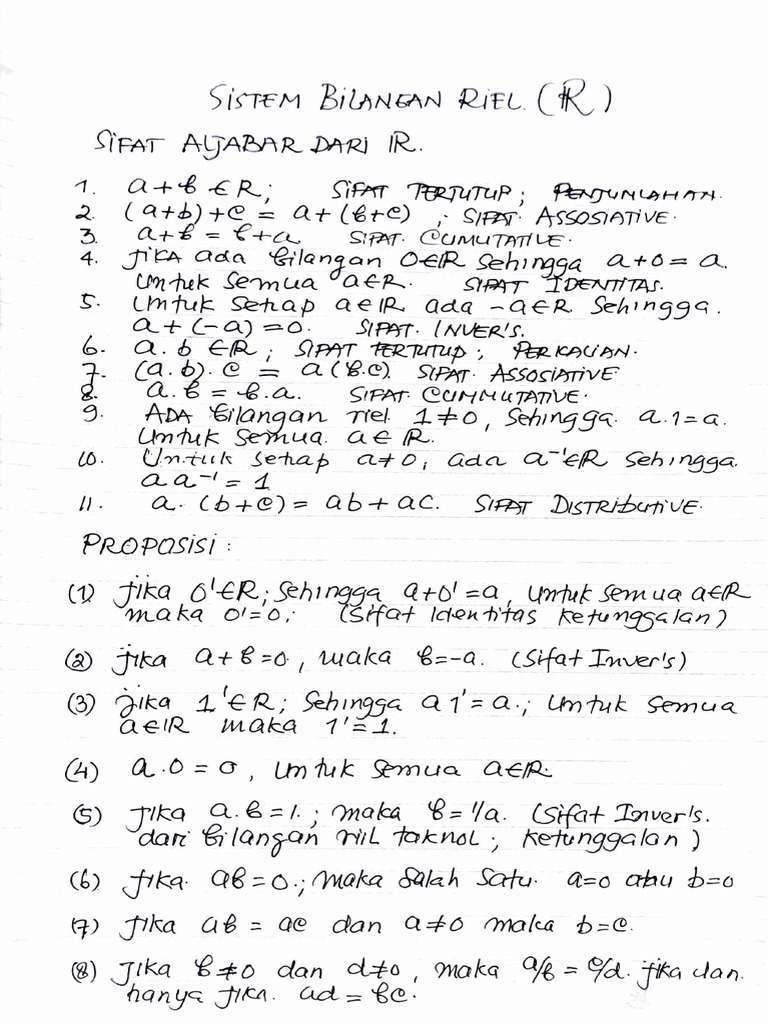 SISTEM BILANGAN RIEL. (ℝ)
SIFAT ALJABAR DARI IR.
1. a + b ∈ R; SIFAT TERTUTUP; PENJUNLAHAN.
2. (a+b)+c = a+(b+c) ; SIFAT. ASSOSIATIVE.
3. a+b = b+a SIFAT. CUMUTATIVE.
4. JIKA ada bilangan 0∈R sehingga a+0 = a.
Untuk semua a∈R. SIFAT IDENTITAS.
5. Untuk setiap a∈IR ada -a∈R sehingga.
a + (-a) = 0. SIFAT. INVER'S.
6. a.b ∈R; SIFAT TERTUTUP; PERKALIAN.
7. (a.b).c = a(b.c). SIFAT. ASSOSIATIVE
8. a.b = b.a. SIFAT. COMMUTATIVE.
9. ADA bilangan riel 1≠0, sehingga. a.1=a.
Untuk semua. a∈R.
10. Untuk setiap a≠0, ada a⁻¹∈R sehingga.
a a⁻¹ = 1
11. a. (b+c) = ab + ac. SIFAT DISTRIBUTIVE.
PROPOSISI :
(1) jika 0'∈R; sehingga a+0'=a, untuk semua a∈R
maka 0'=0; (Sifat Identitas ketunggalan)
(2) jika a+b=0, maka b=-a. (Sifat Inver's)
(3) jika 1'∈R; sehingga a1'=a.; untuk semua
a∈IR maka 1'=1.
(4) a.0 = 0, untuk semua a∈R.
(5) jika a.b=1.; maka b=1/a. (Sifat Inver's.
dari bilangan riil taknol; ketunggalan)
(6) jika. ab=0.; maka salah satu. a=0 atau b=0
(7) jika ab = ac dan a≠0 maka b=c.
(8) Jika b≠0 dan d≠0, maka a/b = c/d. jika dan.
hanya jika. ad = bc.